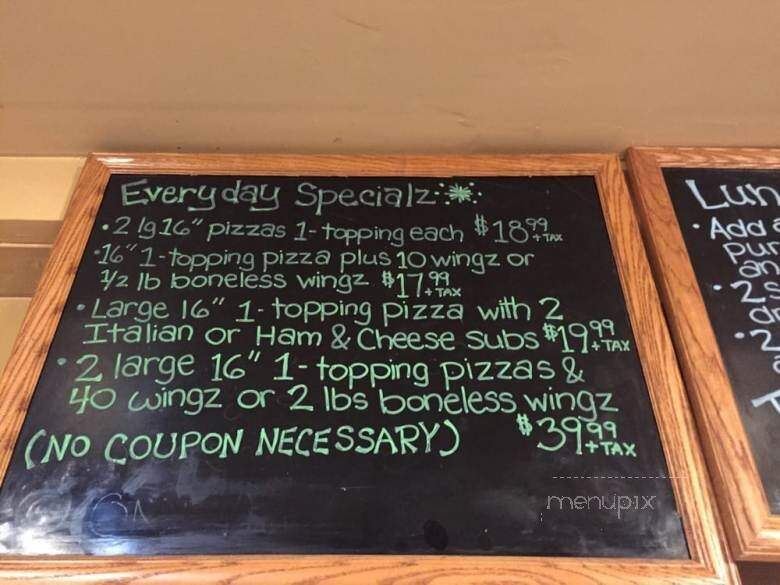 Everyday Specialz
• 2 lg 16" pizzas 1-topping each $18.99 +TAX
• 16" 1-topping pizza plus 10 wingz or
1/2 lb boneless wingz $17.99 +TAX
• Large 16" 1-topping pizza with 2
Italian or Ham & Cheese subs $19.99 +TAX
• 2 large 16" 1-topping pizzas &
40 wingz or 2 lbs boneless wingz
(NO COUPON NECESSARY) $39.99 +TAX
menupix
Lun
• Add
an
• 2
• 2